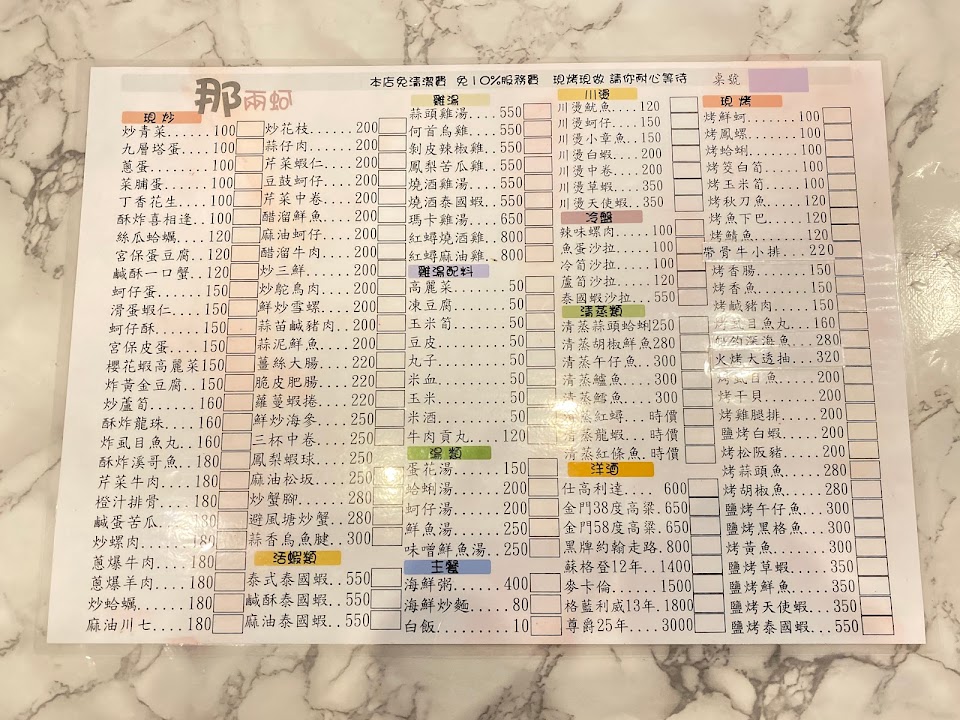 本店免清潔費 免10%服務費 現烤現做 請你耐心等待 桌號
那兩蚵
現炒
炒青菜......100
九層塔蛋...100
蔥蛋.........100
菜脯蛋......100
丁香花生...100
酥炸喜相逢..100
絲瓜蛤蠣...120
宮保蛋豆腐..120
鹹酥一口蟹..120
蚵仔蛋......150
滑蛋蝦仁...150
蚵仔酥......150
宮保皮蛋...150
櫻花蝦高麗菜150
炸黃金豆腐..150
炒蘆筍......160
酥炸龍珠...160
炸虱目魚丸..160
酥炸溪哥魚..180
芹菜牛肉...180
橙汁排骨...180
鹹蛋苦瓜...180
炒螺肉......180
蔥爆牛肉...180
蔥爆羊肉...180
炒蛤蠣......180
麻油川七...180
炒花枝......200
蒜仔肉......200
芹菜蝦仁...200
豆鼓蚵仔...200
芹菜中卷...200
醋溜鮮魚...200
麻油蚵仔...200
醋溜牛肉...200
炒三鮮......200
炒鴕鳥肉...200
鮮炒雪螺...200
蒜苗鹹豬肉..200
蒜泥鮮魚...200
薑絲大腸...220
脆皮肥腸...220
蘿蔓蝦捲...220
鮮炒海參...250
三杯中卷...250
鳳梨蝦球...250
麻油松坂...250
炒蟹腳......280
避風塘炒蟹..280
蒜香烏魚腱..300
活蝦類
泰式泰國蝦..550
鹹酥泰國蝦..550
麻油泰國蝦..550
雞湯
蒜頭雞湯...550
何首烏雞...550
剝皮辣椒雞..550
鳳梨苦瓜雞..550
燒酒雞湯...550
燒酒泰國蝦..550
瑪卡雞湯...650
紅蟳燒酒雞..800
紅蟳麻油雞..800
雞湯配料
高麗菜......50
凍豆腐......50
玉米筍......50
豆皮.........50
丸子.........50
米血.........50
玉米.........50
米酒.........50
牛肉貢丸...120
湯類
蛋花湯......150
蛤蜊湯......200
蚵仔湯......200
鮮魚湯......250
味噌鮮魚湯..250
主餐
海鮮粥......400
海鮮炒麵...80
白飯.........10
川燙
川燙魷魚...120
川燙蚵仔...150
川燙小章魚..150
川燙白蝦...200
川燙中卷...200
川燙草蝦...350
川燙天使蝦..350
冷盤
辣味螺肉...100
魚蛋沙拉...100
冷筍沙拉...100
蘆筍沙拉...120
泰國蝦沙拉..550
清蒸類
清蒸蒜頭蛤蜊250
清蒸胡椒鮮魚280
清蒸午仔魚..300
清蒸鱸魚...300
清蒸鱈魚...300
清蒸紅蟳...時價
清蒸龍蝦...時價
清蒸紅條魚..時價
洋酒
仕高利達...600
金門38度高粱.650
金門58度高粱.650
黑牌約翰走路.800
蘇格登12年..1400
麥卡倫......1500
格藍利威13年.1800
尊爵25年....3000
現烤
烤鮮蚵......100
烤鳳螺......100
烤蛤蜊......100
烤筊白筍...100
烤玉米筍...100
烤秋刀魚...120
烤魚下巴...120
烤鯖魚......120
帶骨牛小排...220
烤香腸......150
烤香魚......150
烤鹹豬肉...150
烤虱目魚丸..160
280
火烤大透抽...320
烤虱目魚...200
烤干貝......200
烤雞腿排...200
鹽烤白蝦...200
烤松阪豬...200
烤蒜頭魚...280
烤胡椒魚...280
鹽烤午仔魚..300
鹽烤黑格魚..300
烤黃魚......300
鹽烤草蝦...350
鹽烤鮮魚...350
鹽烤天使蝦..350
鹽烤泰國蝦..550